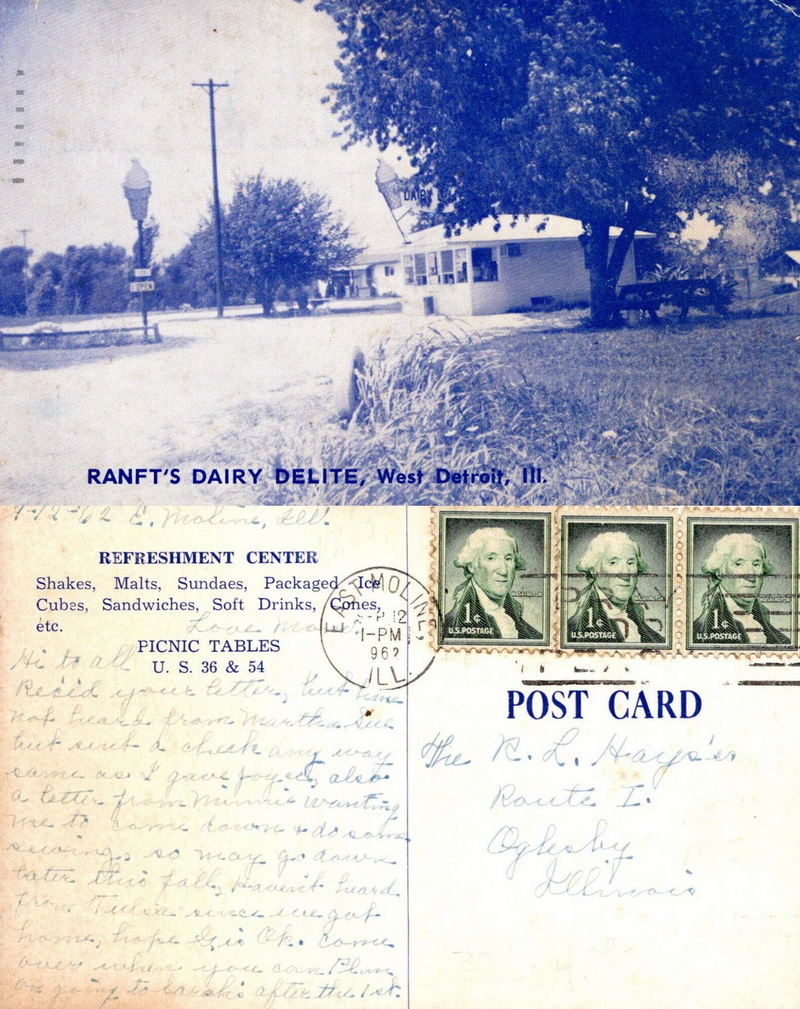 DAIRY
OPEN
RANFT'S DAIRY DELITE, West Detroit, Ill.
9-12-62 E. Moline, Ill.
REFRESHMENT CENTER
Shakes, Malts, Sundaes, Packaged Ice
Cubes, Sandwiches, Soft Drinks, Cones,
etc.
Love
PICNIC TABLES
U. S. 36 & 54
Hi to all
Rec'd your letter, but have
not heard from Martha Sue
but sent a check any way
same as I gave Joyce, also
a letter from Minnie wanting
me to come down & do some
sewing, so may go down
later this fall, Haven't heard
from Tulsa since we got
home, hope is Ok. Come
over when you can Plan
on going to after the 1st.
EAST MOLINE,
12
1-PM
1962
ILL.
1¢ WASHINGTON
U.S. POSTAGE
1¢ WASHINGTON
U.S. POSTAGE
1¢ WASHINGTON
U.S. POSTAGE
POST CARD
The R. L. Hays'es
Route 1.
Oglesby
Illinois